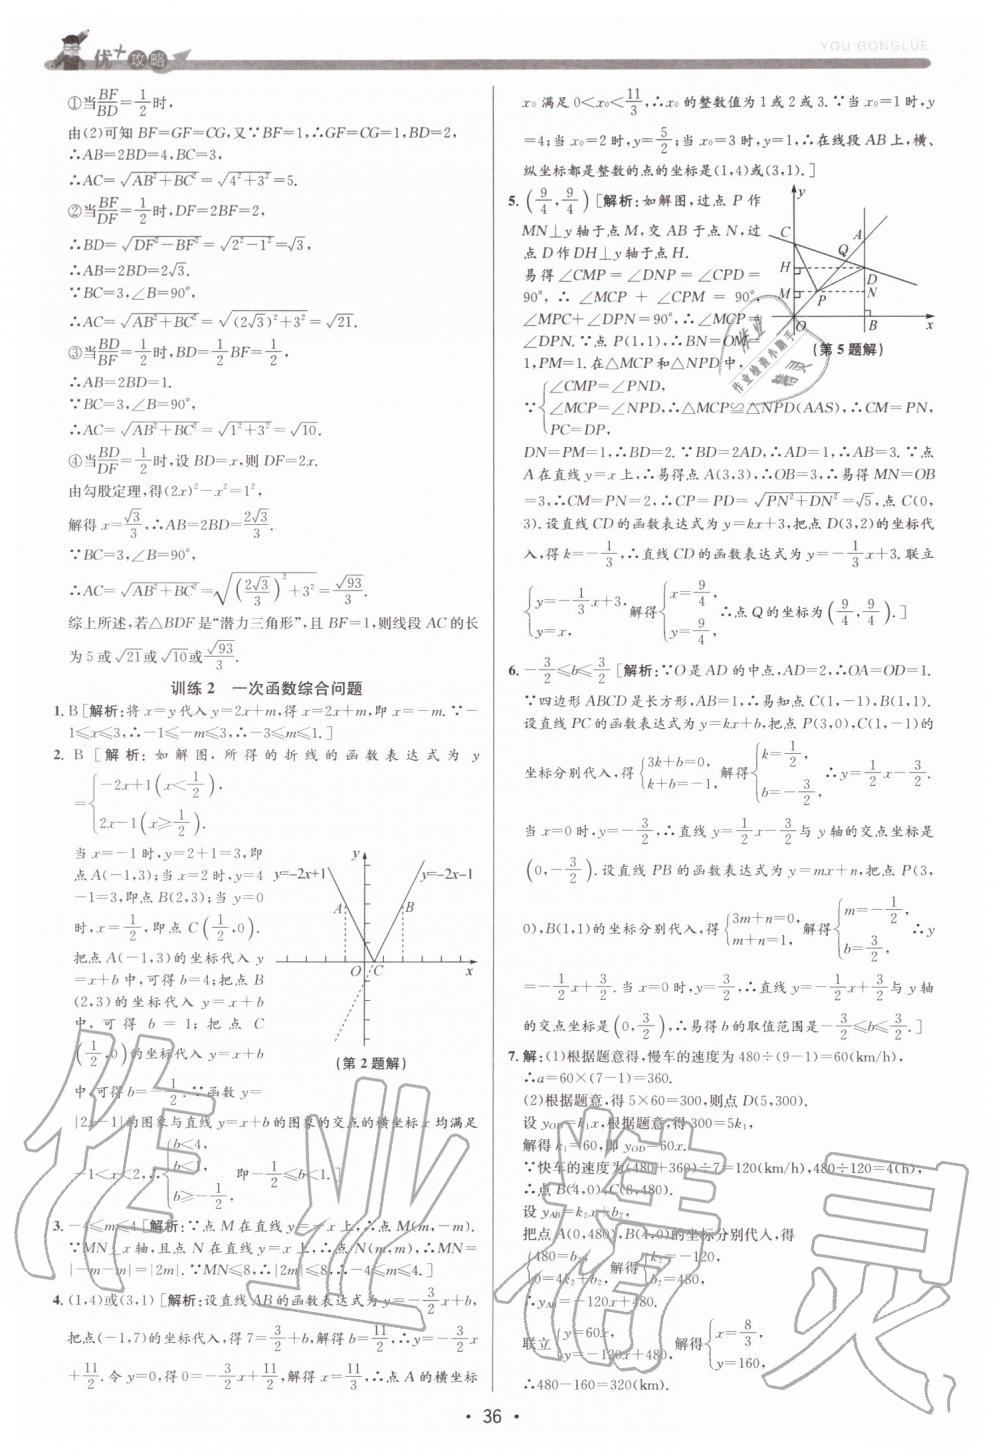 优+攻略
YOU GONGLÜE
①当BF/BD=1/2时,
由(2)可知 BF=GF=CG,又∵BF=1,∴GF=CG=1,BD=2,
∴AB=2BD=4,BC=3,
∴AC=√(AB²+BC²)=√(4²+3²)=5.
②当BF/DF=1/2时,DF=2BF=2,
∴BD=√(DF²-BF²)=√(2²-1²)=√3,
∴AB=2BD=2√3.
∵BC=3,∠B=90°,
∴AC=√(AB²+BC²)=√((2√3)²+3²)=√21.
③当BD/BF=1/2时,BD=1/2BF=1/2,
∴AB=2BD=1.
∵BC=3,∠B=90°,
∴AC=√(AB²+BC²)=√(1²+3²)=√10.
④当BD/DF=1/2时,设 BD=x,则 DF=2x.
由勾股定理,得(2x)²-x²=1²,
解得 x=√3/3,∴AB=2BD=2√3/3.
∵BC=3,∠B=90°,
∴AC=√(AB²+BC²)=√((2√3/3)²+3²)=√93/3.
综上所述,若△BDF 是“潜力三角形”,且 BF=1,则线段 AC 的长
为 5 或√21或√10或√93/3.
训练 2 一次函数综合问题
1. B [解析:将 x=y 代入 y=2x+m,得 x=2x+m,即 x=-m. ∵-
1≤x≤3,∴-1≤-m≤3,∴-3≤m≤1.]
2. B [解析:如解图,所得的折线的函数表达式为 y
={-2x+1(x<1/2),
2x-1(x≥1/2).
当 x=-1 时,y=2+1=3,即
点A(-1,3);当 x=2 时,y=4
-1=3,即点 B(2,3);当 y=0
时,x=1/2,即点 C(1/2,0).
把点 A(-1,3)的坐标代入 y
=x+b 中,可得 b=4;把点 B
(2,3)的坐标代入 y=x+b
中,可得 b=1;把点 C
(1/2,0)的坐标代入 y=x+b
中,可得 b=-1/2.∵函数 y=
|2x-1|的图象与直线 y=x+b 的图象的交点的横坐标 x 均满足
-1<x<2,∴{b<4,b<1,b≥-1/2, 即-1/2≤b<1.]
y=-2x+1
y
y=-2x-1
A
B
O
C
x
(第 2 题解)
3. -4≤m≤4 [解析:∵点 M 在直线 y=-x 上,∴点 M(m,-m).
∵MN⊥x 轴,且点 N 在直线 y=x 上,∴点 N(m,m),∴MN=
|-m-m|=|2m|. ∵MN≤8,∴|2m|≤8,∴-4≤m≤4.]
4. (1,4)或(3,1) [解析:设直线 AB 的函数表达式为 y=-3/2x+b,
把点(-1,7)的坐标代入,得 7=3/2+b,解得 b=11/2,∴y=-3/2x
+11/2.令 y=0,得 0=-3/2x+11/2,解得 x=11/3,∴点 A 的横坐标
x₀ 满足 0<x₀<11/3,∴x₀ 的整数值为 1 或 2 或 3. ∵当 x₀=1 时,y
=4;当 x₀=2 时,y=5/2;当 x₀=3 时,y=1,∴在线段 AB 上,横、
纵坐标都是整数的点的坐标是(1,4)或(3,1).]
5. (9/4,9/4) [解析:如解图,过点 P 作
MN⊥y 轴于点 M,交 AB 于点 N,过
点 D 作 DH⊥y 轴于点 H.
易得∠CMP=∠DNP=∠CPD=
90°,∴∠MCP+∠CPM=90°,
∠MPC+∠DPN=90°,∴∠MCP=
∠DPN. ∵点 P(1,1),∴BN=OM=
1,PM=1. 在△MCP 和△NPD 中,
y
C
A
Q
H
D
M
P
N
O
B
x
(第 5 题解)
∵{∠CMP=∠PND,
∠MCP=∠NPD,∴△MCP≌△NPD(AAS),∴CM=PN,
PC=DP,
DN=PM=1,∴BD=2. ∵BD=2AD,∴AD=1,∴AB=3. ∵点
A 在直线 y=x 上,∴易得点 A(3,3),∴OB=3,∴易得 MN=OB
=3,∴CM=PN=2,∴CP=PD=√(PN²+DN²)=√5,点 C(0,
3). 设直线 CD 的函数表达式为 y=kx+3,把点 D(3,2)的坐标代
入,得 k=-1/3,∴直线 CD 的函数表达式为 y=-1/3x+3.联立
{y=-1/3x+3,y=x, 解得{x=9/4,y=9/4, ∴点 Q 的坐标为(9/4,9/4).]
6. -3/2≤b≤3/2 [解析:∵O 是 AD 的中点,AD=2,∴OA=OD=1.
∵四边形 ABCD 是长方形,AB=1,∴易知点 C(1,-1),B(1,1).
设直线 PC 的函数表达式为 y=kx+b,把点 P(3,0),C(1,-1)的
坐标分别代入,得{3k+b=0,k+b=-1, 解得{k=1/2,b=-3/2, ∴y=1/2x-3/2.
当 x=0 时,y=-3/2,∴直线 y=1/2x-3/2与 y 轴的交点坐标是
(0,-3/2). 设直线 PB 的函数表达式为 y=mx+n,把点 P(3,
0),B(1,1)的坐标分别代入,得{3m+n=0,m+n=1, 解得{m=-1/2,b=3/2, ∴y
=-1/2x+3/2.当 x=0 时,y=3/2,∴直线 y=-1/2x+3/2与 y 轴
的交点坐标是(0,3/2),∴易得 b 的取值范围是-3/2≤b≤3/2.]
7. 解:(1)根据题意得,慢车的速度为 480÷(9-1)=60(km/h),
∴a=60×(7-1)=360.
(2)根据题意,得 5×60=300,则点 D(5,300).
设 yOD=k₁x,根据题意,得 300=5k₁,
解得 k₁=60,即 yOD=60x.
∵快车的速度为(480+360)÷7=120(km/h),480÷120=4(h),
∴点 B(4,0),C(8,480).
设 yAB=k₂x+b₂,
把点 A(0,480),B(4,0)的坐标分别代入,得
{480=b₂,0=4k₂+b₂, 解得{k₂=-120,b₂=480,
∴yAB=-120x+480.
联立{y=60x,y=-120x+480, 解得{x=8/3,y=160,
∴480-160=320(km).
作业精灵
作业检查小助手
· 36 ·